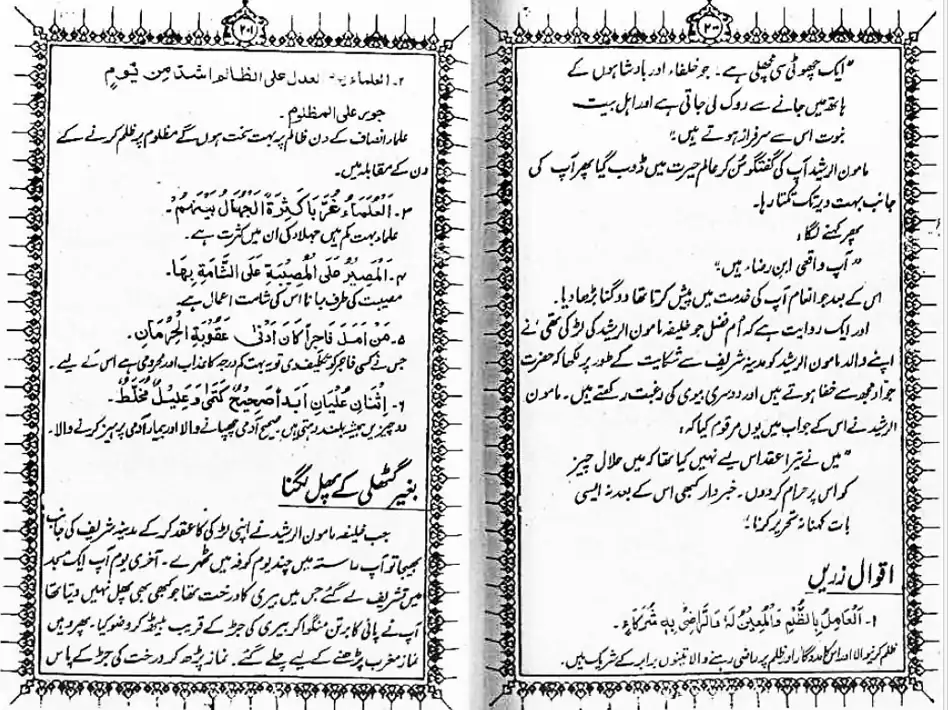 ۲۰۰
"ایک چھوٹی سی مچھلی ہے۔ جو خلفاء اور بادشاہوں کے
ہاتھ میں جانے سے روک لی جاتی ہے اور اہل بیت
نبوت اس سے سرفراز ہوتے ہیں"
مامون الرشید آپ کی گفتگو سُن کر عالم حیرت میں ڈوب گیا پھر آپ کی
جانب بہت دیر تک تکتا رہا۔
پھر کہنے لگا:
"آپ واقعی ابن رضاء ہیں"
اس کے بعد جو انعام آپ کی خدمت میں پیش کرتا تھا دوگنا بڑھا دیا۔
اور ایک روایت ہے کہ اُم فضل جو خلیفہ مامون الرشید کی لڑکی تھی نے
اپنے والد مامون الرشید کو مدینہ شریف سے شکایت کے طور پر لکھا کہ حضرت
جواد مجھ سے خفا ہوتے ہیں اور دوسری بیوی کی رغبت رکھتے ہیں۔ مامون
الرشید نے اس کے جواب میں یوں مرقوم کیا کہ:
"میں نے تیرا عقد اس لیے نہیں کیا تھا کہ میں حلال چیز
کو اس پر حرام کر دوں۔ خبردار کبھی اس کے بعد نہ ایسی
بات کہنا نہ تحریر کرنا"
اقوال زریں
۱۔ اَلْعَامِلُ بِالظُّلْمِ وَالْمُعِیْنُ لَهٗ وَالرَّاضِیْ بِهٖ شُرَکَاءُ۔
ظلم کرنیوالا اور اس کا مددگار اور ظلم پر راضی رہنے والا تینوں برابر کے شریک ہیں۔
۲۰۱
۲۔ العلماء العدل علی الظالم اشد من یَومِ
جور علی المظلوم۔
علماء انصاف کے دن ظالم پر بہت سخت ہوں گے مظلوم پر ظلم کرنے کے
دن کے مقابلہ میں۔
۳۔ اَلْعُلَمَاءُ غُرَبَا کَثِرَةُ الْجُهَالِ بَیْنَهُمْ۔
علماء بہت کم ہیں جہلاء کی ان میں کثرت ہے۔
۴۔ اَلْمَصِیْرُ عَلَی الْمُصِیْبَةِ عَلَی الشَّامَةِ بِهَا۔
مصیبت کی طرف جانا اس کی شامت اعمال ہے۔
۵۔ مَنْ اَمَلَ فَاجِرًا کَانَ اَدْنٰی عَقُوْبَةِ الْحِرْمَانِ۔
جس نے کسی فاجر کو تکلیف دی تو یہ بہت کم درجہ کا عذاب اور محرومی ہے اس کے لیے۔
۶۔ اِثْنَانِ عُلْیَانِ اَبَدًا صَحِیْحٌ وَعَلِیْلٌ مُخَلِّطٌ۔
دو چیزیں ہمیشہ بلند رہتی ہیں صحیح آدمی چھپانے والا اور بیمار آدمی پرہیز کرنے والا۔
بغیر گٹھلی کے پھل لگنا
جب خلیفہ مامون الرشید نے اپنی لڑکی کا عقد کر کے مدینہ شریف کی جانب
بھیجا تو آپ راستہ میں چند یوم کوفہ میں ٹھہرے۔ آخری یوم آپ ایک مسجد
میں تشریف لے گئے جس میں بیری کا درخت تھا جو کبھی بھی پھل نہیں دیتا تھا
آپ نے پانی کا برتن منگوا کر بیری کی جڑ کے قریب بیٹھ کر وضو کیا۔ پھر وہیں
نماز مغرب پڑھنے کے لیے چلے گئے۔ نماز پڑھ کر درخت کی جڑ کے پاس